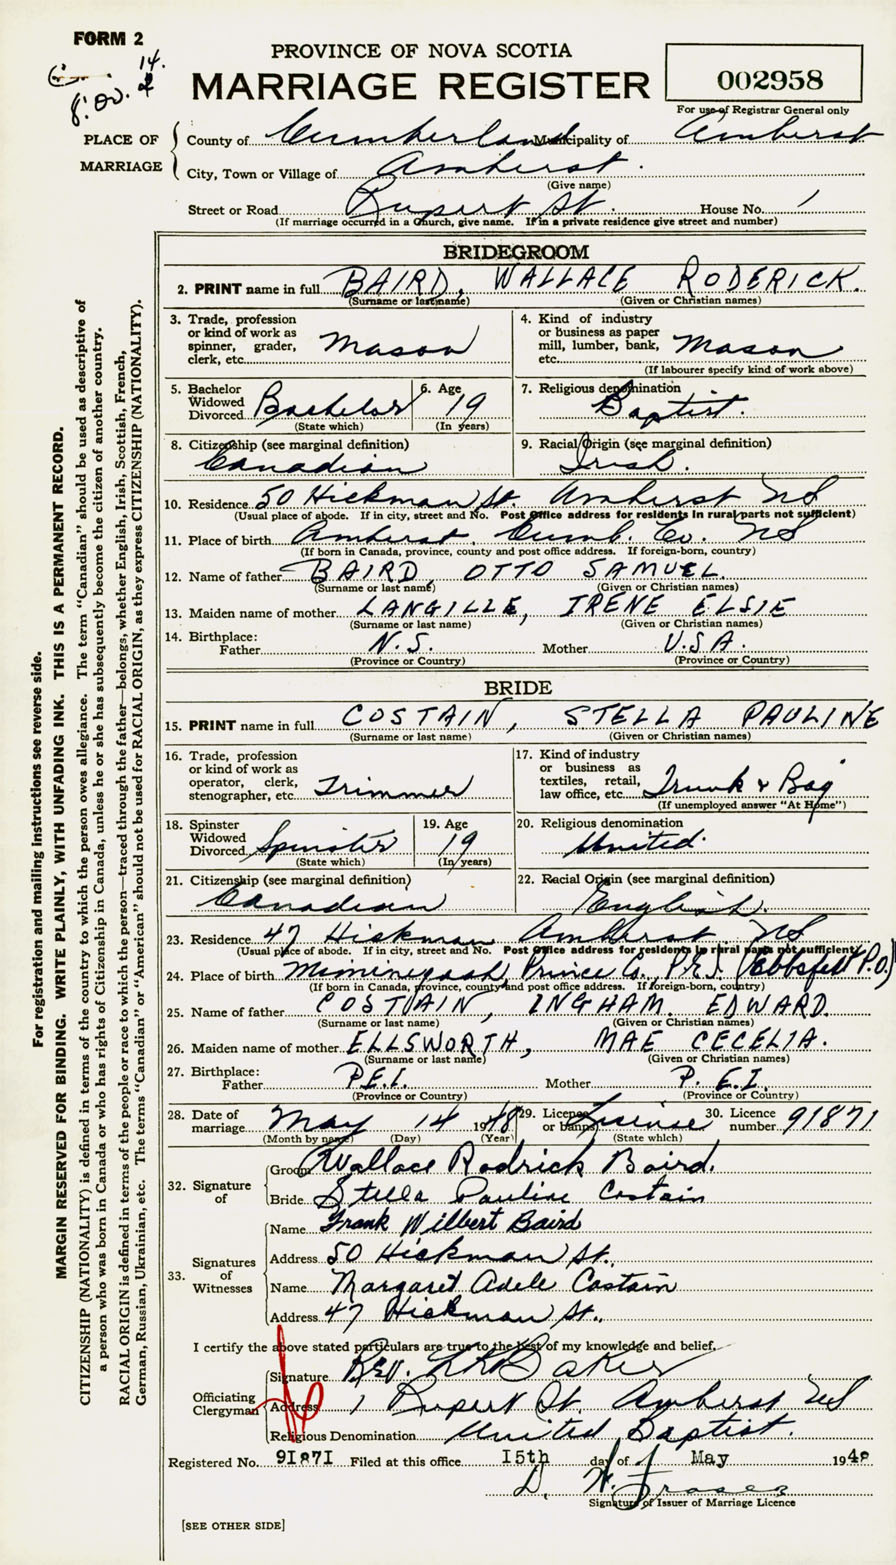 FORM 2
14.
PROVINCE OF NOVA SCOTIA
MARRIAGE REGISTER
002958
For use of Registrar General only
PLACE OF MARRIAGE
County of Cumberland Municipality of Amherst
City, Town or Village of Amherst.
(Give name)
Street or Road Rupert St. House No. 1
(If marriage occurred in a Church, give name. If in a private residence give street and number)
BRIDEGROOM
2. PRINT name in full BAIRD, WALLACE RODERICK.
(Surname or last name) (Given or Christian names)
3. Trade, profession or kind of work as spinner, grader, clerk, etc. Mason
4. Kind of industry or business as paper mill, lumber, bank, etc. Mason
(If labourer specify kind of work above)
5. Bachelor Widowed Divorced Bachelor
(State which)
6. Age 19
(In years)
7. Religious denomination Baptist.
8. Citizenship (see marginal definition) Canadian
9. Racial Origin (see marginal definition) Irish.
10. Residence 50 Hickman St. Amherst NS
(Usual place of abode. If in city, street and No. Post Office address for residents in rural parts not sufficient)
11. Place of birth Amherst. Cumb. Co. NS
(If born in Canada, province, county and post office address. If foreign-born, country)
12. Name of father BAIRD, OTTO SAMUEL.
(Surname or last name) (Given or Christian names)
13. Maiden name of mother LANGILLE, IRENE ELSIE
(Surname or last name) (Given or Christian names)
14. Birthplace:
Father N.S. Mother U.S.A.
(Province or Country) (Province or Country)
BRIDE
15. PRINT name in full COSTAIN, STELLA PAULINE
(Surname or last name) (Given or Christian names)
16. Trade, profession or kind of work as operator, clerk, stenographer, etc. Trimmer
17. Kind of industry or business as textiles, retail, law office, etc. Trunk & Bag
(If unemployed answer "At Home")
18. Spinster Widowed Divorced Spinster
(State which)
19. Age 19
(In years)
20. Religious denomination United.
21. Citizenship (see marginal definition) Canadian
22. Racial Origin (see marginal definition) English.
23. Residence 47 Hickman Amherst NS
(Usual place of abode. If in city, street and No. Post Office address for residents in rural parts not sufficient)
24. Place of birth Miminegash, Prince Co., P.E.I. (Ebbsfleet P.O.)
(If born in Canada, province, county and post office address. If foreign-born, country)
25. Name of father COSTAIN, INGHAM. EDWARD.
(Surname or last name) (Given or Christian names)
26. Maiden name of mother ELLSWORTH, MAE CECELIA.
(Surname or last name) (Given or Christian names)
27. Birthplace:
Father P.E.I. Mother P.E.I.
(Province or Country) (Province or Country)
28. Date of marriage May 14 1948
(Month by name) (Day) (Year)
29. Licence or banns Lisense
(State which)
30. Licence number 91871
32. Signature of
Groom Wallace Rodrick Baird.
Bride Stella Pauline Costain
33. Signatures of Witnesses
Name Frank Wilbert Baird
Address 50 Hickman St.
Name Margaret Adele Costain
Address 47 Hickman St.,
I certify the above stated particulars are true to the best of my knowledge and belief,
Officiating Clergyman
Signature Rev. Baker
Address 1 Rupert St. Amherst NS
Religious Denomination United Baptist.
Registered No. 91871 Filed at this office 15th day of May 1948
D. W. Fraser
Signature of Issuer of Marriage Licence
[SEE OTHER SIDE]
For registration and mailing instructions see reverse side.
MARGIN RESERVED FOR BINDING. WRITE PLAINLY, WITH UNFADING INK. THIS IS A PERMANENT RECORD.
CITIZENSHIP (NATIONALITY) is defined in terms of the country to which the person owes allegiance. The term "Canadian" should be used as descriptive of
a person who was born in Canada or who has rights of Citizenship in Canada, unless he or she has subsequently become the citizen of another country.
RACIAL ORIGIN is defined in terms of the people or race to which the person—traced through the father—belongs, whether English, Irish, Scottish, French,
German, Russian, Ukrainian, etc. The terms "Canadian" or "American" should not be used for RACIAL ORIGIN, as they express CITIZENSHIP (NATIONALITY).